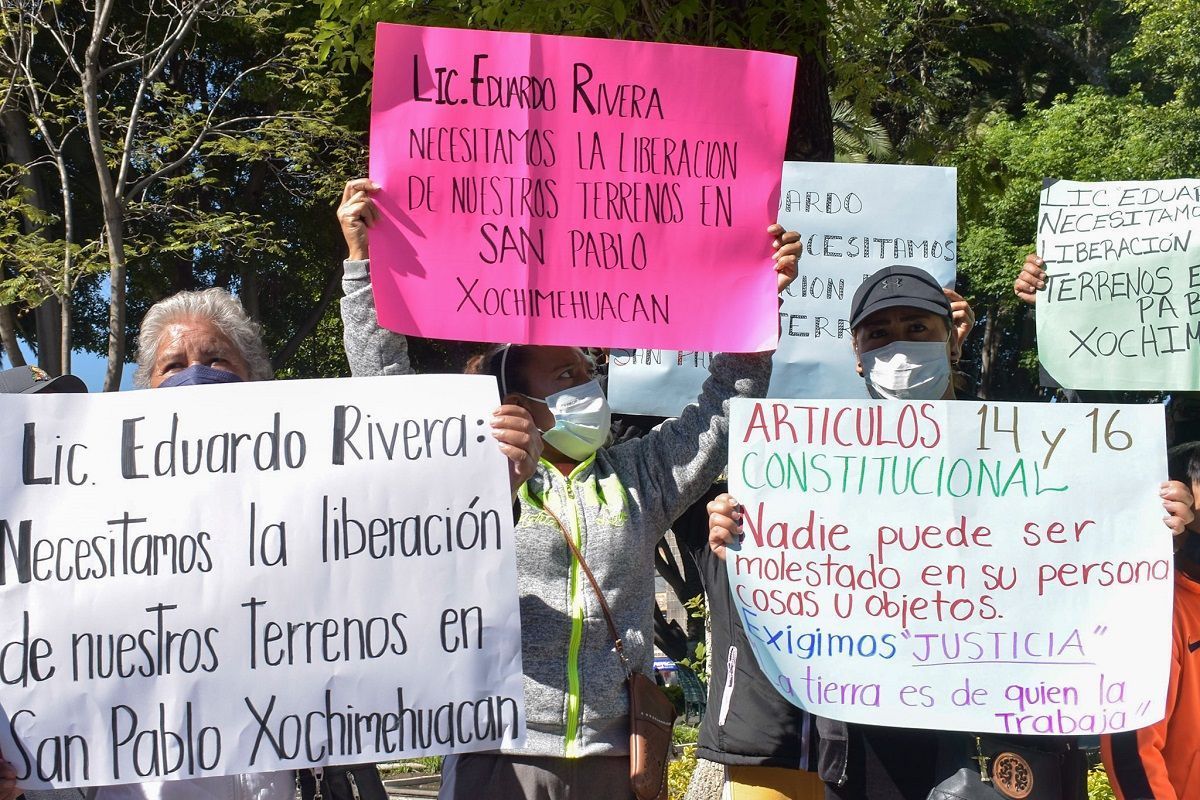 LIC. EDUARDO RIVERA
NECESITAMOS LA LIBERACION
DE NUESTROS TERRENOS EN
SAN PABLO
XOCHIMEHUACAN
ARDO
CESITAMOS
CION
TERR
SAN
LIC. EDUAR
NECESITAMO
LIBERACIÓN
TERRENOS E
PAB
XOCHIM
Lic. Eduardo Rivera:
Necesitamos la liberación
de nuestros Terrenos en
San Pablo Xochimehuacan
ARTICULOS 14 y 16
CONSTITUCIONAL
Nadie puede ser
molestado en su persona
cosas u objetos.
Exigimos "JUSTICIA"
a tierra es de quien la
Trabaja"